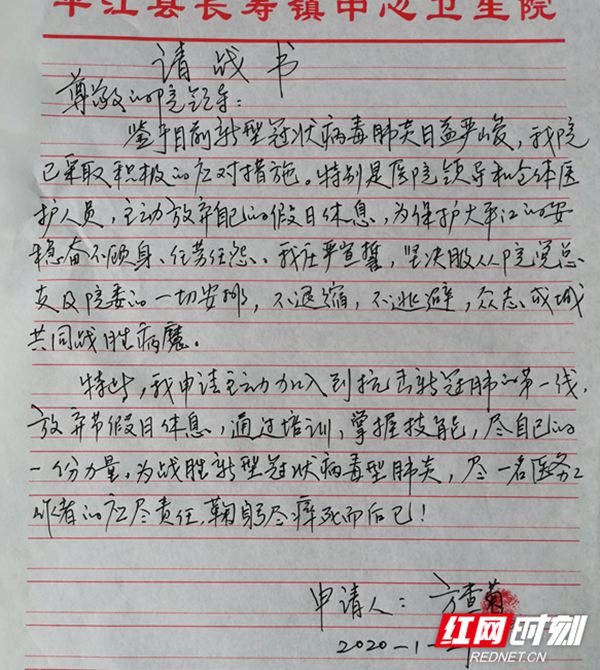 平江县长寿镇中心卫生院
请战书
尊敬的院领导:
鉴于目前新型冠状病毒肺炎日益严峻,我院
已采取积极的应对措施。特别是医院领导和全体医
护人员,主动放弃自己的假日休息,为保护大平江的安
稳奋不顾身、任劳任怨、我庄严宣誓,坚决服从院党总
支及院委的一切安排,不退缩,不逃避,众志成城
共同战胜病魔。
特此,我申请主动加入到抗击新冠肺的第一线,
放弃节假日休息,通过培训,掌握技能,尽自己的
一份力量,为战胜新型冠状病毒型肺炎,尽一名医务工
作者的应尽责任,鞠躬尽瘁死而后已!
申请人:方查菊
2020-1-
红网时刻
REDNET.CN